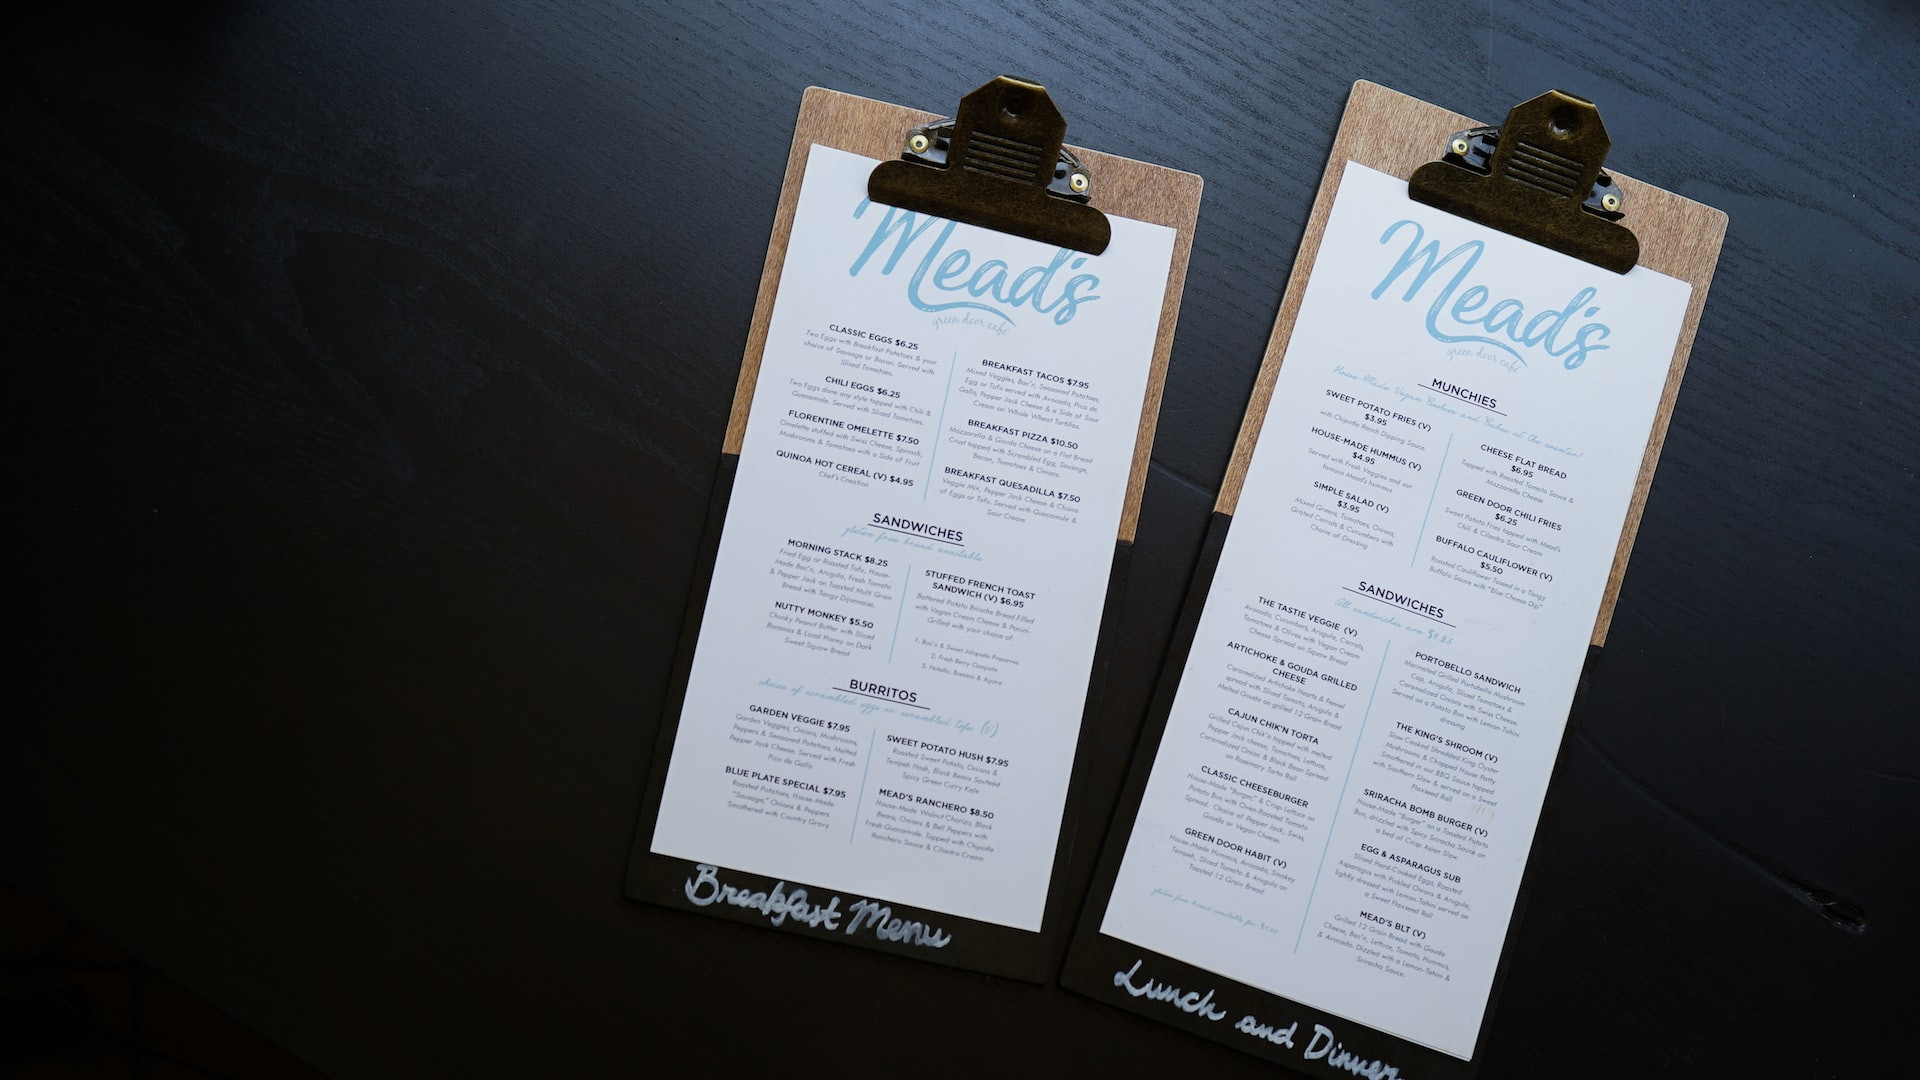 Mead's
green door café
CLASSIC EGGS $6.25
Two Eggs with Breakfast Potatoes & your
choice of Sausage or Bacon. Served with
Sliced Tomatoes.
CHILI EGGS $6.25
Two Eggs done any style topped with Chili &
Guacamole. Served with Sliced Tomatoes.
FLORENTINE OMELETTE $7.50
Omelette stuffed with Swiss Cheese, Spinach,
Mushrooms & Tomatoes with a Side of Fruit
QUINOA HOT CEREAL (V) $4.95
Chef's Creation
BREAKFAST TACOS $7.95
Mixed Veggies, Bac'n, Seasoned Potatoes,
Egg or Tofu served with Avocado, Pico de
Gallo, Pepper Jack Cheese & a Side of Sour
Cream on Whole Wheat Tortillas.
BREAKFAST PIZZA $10.50
Mozzarella & Gouda Cheese on a Flat Bread
Crust topped with Scrambled Egg, Sausage,
Bacon, Tomatoes & Onions.
BREAKFAST QUESADILLA $7.50
Veggie Mix, Pepper Jack Cheese & Choice
of Eggs or Tofu. Served with Guacamole &
Sour Cream
SANDWICHES
gluten free bread available
MORNING STACK $8.25
Fried Egg or Roasted Tofu, House-
Made Bac'n, Arugula, Fresh Tomato
& Pepper Jack on Toasted Multi Grain
Bread with Tangy Dijonnaise.
NUTTY MONKEY $5.50
Chunky Peanut Butter with Sliced
Bananas & Local Honey on Dark
Sweet Squaw Bread
STUFFED FRENCH TOAST
SANDWICH (V) $6.95
Battered Potato Brioche Bread Filled
with Vegan Cream Cheese & Panini-
Grilled with your choice of:
1. Bac'n & Sweet Jalapeño Preserves
2. Fresh Berry Compote
3. Nutella, Banana & Agave
BURRITOS
choice of scrambled eggs or scrambled tofu (V)
GARDEN VEGGIE $7.95
Garden Veggies, Onions, Mushrooms,
Peppers & Seasoned Potatoes, Melted
Pepper Jack Cheese. Served with Fresh
Pico de Gallo
BLUE PLATE SPECIAL $7.95
Roasted Potatoes, House-Made
"Sausage," Onions & Peppers
Smothered with Country Gravy
SWEET POTATO HUSH $7.95
Roasted Sweet Potato, Onions &
Tempeh Hash, Black Beans Sauteéd
Spicy Green Curry Kale
MEAD'S RANCHERO $8.50
House-Made Walnut Chorizo, Black
Beans, Onions & Bell Peppers with
Fresh Guacamole. Topped with Chipotle
Ranchero Sauce & Cilantro Cream
Breakfast Menu
Mead's
green door café
MUNCHIES
House-Made Vegan Cookies and Cakes at the counter!
SWEET POTATO FRIES (V)
$3.95
with Chipotle Ranch Dipping Sauce
HOUSE-MADE HUMMUS (V)
$4.95
Served with Fresh Veggies and our
famous Mead's hummus
SIMPLE SALAD (V)
$3.95
Mixed Greens, Tomatoes, Onions,
Grated Carrots & Cucumbers with
Choice of Dressing
CHEESE FLAT BREAD
$6.95
Topped with Roasted Tomato Sauce &
Mozzarella Cheese
GREEN DOOR CHILI FRIES
$6.25
Sweet Potato Fries topped with Mead's
Chili & Cilantro Sour Cream
BUFFALO CAULIFLOWER (V)
$5.50
Roasted Cauliflower Tossed in a Tangy
Buffalo Sauce with "Blue Cheese Dip"
SANDWICHES
All sandwiches are $8.25
THE TASTIE VEGGIE (V)
Avocado, Cucumbers, Arugula, Carrots,
Tomatoes & Olives with Vegan Cream
Cheese Spread on Squaw Bread
ARTICHOKE & GOUDA GRILLED
CHEESE
Caramelized Artichoke Hearts & Fennel
spread with Sliced Tomato, Arugula &
Melted Gouda on grilled 12 Grain Bread
CAJUN CHIK'N TORTA
Grilled Cajun Chik'n topped with melted
Pepper Jack cheese, Tomatoes, Lettuce,
Caramelized Onion & Black Bean Spread
on Rosemary Torta Roll
CLASSIC CHEESEBURGER
House-Made "Burger," & Crisp Lettuce on
Potato Bun with Oven-Roasted Tomato
Spread. Choice of Pepper Jack, Swiss,
Gouda or Vegan Cheese.
GREEN DOOR HABIT (V)
House-Made Hummus, Avocado, Smokey
Tempeh, Sliced Tomato & Arugula on
Toasted 12 Grain Bread
gluten free bread available for $1.00
PORTOBELLO SANDWICH
Marinated Grilled Portobello Mushroom
Cap, Arugula, Sliced Tomatoes &
Caramelized Onions with Swiss Cheese.
Served on a Potato Bun with Lemon-Tahini
dressing
THE KING'S SHROOM (V)
Slow Cooked Shredded King Oyster
Mushrooms & Chopped House Patty
Smothered in our BBQ Sauce topped
with Southern Slaw & served on a Sweet
Flaxseed Roll
SRIRACHA BOMB BURGER (V)
House-Made "Burger" on a Toasted Potato
Bun, drizzled with Spicy Sriracha Sauce on
a bed of Crisp Asian Slaw
EGG & ASPARAGUS SUB
Sliced Hard-Cooked Eggs, Roasted
Asparagus with Pickled Onions & Arugula,
lightly dressed with Lemon-Tahini served on
a Sweet Flaxseed Roll
MEAD'S BLT (V)
Grilled 12 Grain Bread with Gouda
Cheese, Bac'n, Lettuce, Tomato, Hummus,
& Avocado. Dizzled with a Lemon-Tahini &
Sriracha Sauce.
Lunch and Dinner